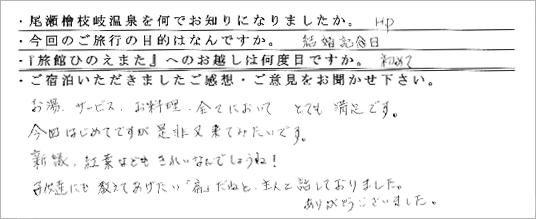 ・尾瀬檜枝岐温泉を何でお知りになりましたか。 HP
・今回のご旅行の目的はなんですか。 結婚記念日
・『旅館ひのえまた』へのお越しは何度目ですか。 初めて
・ご宿泊いただきましたご感想・ご意見をお聞かせ下さい。
お湯、サービス、お料理、全てにおいて とても 満足です。
今回はじめてですが是非又来てみたいです。
新緑、紅葉なども きれいなんでしょうね!
子供達にも教えてあげたい「宿」だねと、主人と話しておりました。
ありがとうございました。